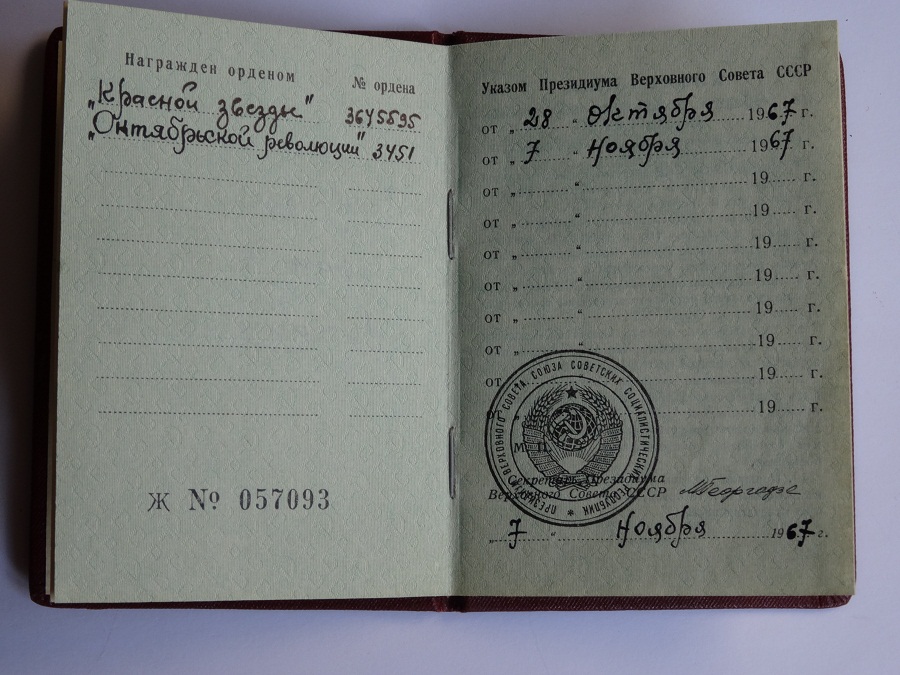 Награжден орденом
№ ордена
„Красной звезды" 3645595
„Октябрьской революции" 3451
Ж № 057093
Указом Президиума Верховного Совета СССР
от „ 28 “ Октября 1967 г.
от „ 7 “ Ноября 1967 г.
от „ “ 19 г.
от „ “ 19 г.
от „ “ 19 г.
от „ “ 19 г.
от „ “ 19 г.
от „ “ 19 г.
от „ “ 19 г.
„ 19 г.
ПРЕЗИДИУМ ВЕРХОВНОГО СОВЕТА СОЮЗА СОВЕТСКИХ СОЦИАЛИСТИЧЕСКИХ РЕСПУБЛИК
М. П.
Секретарь Президиума
Верховного Совета СССР МГеоргадзе
„ 7 “ Ноября 1967 г.